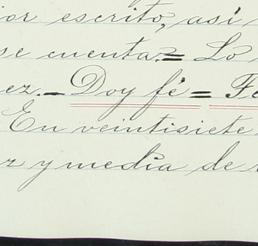 ior escrito, así
se cuenta.= Lo
ez.- Doy fé = Fe
En veintisiete
z y media de